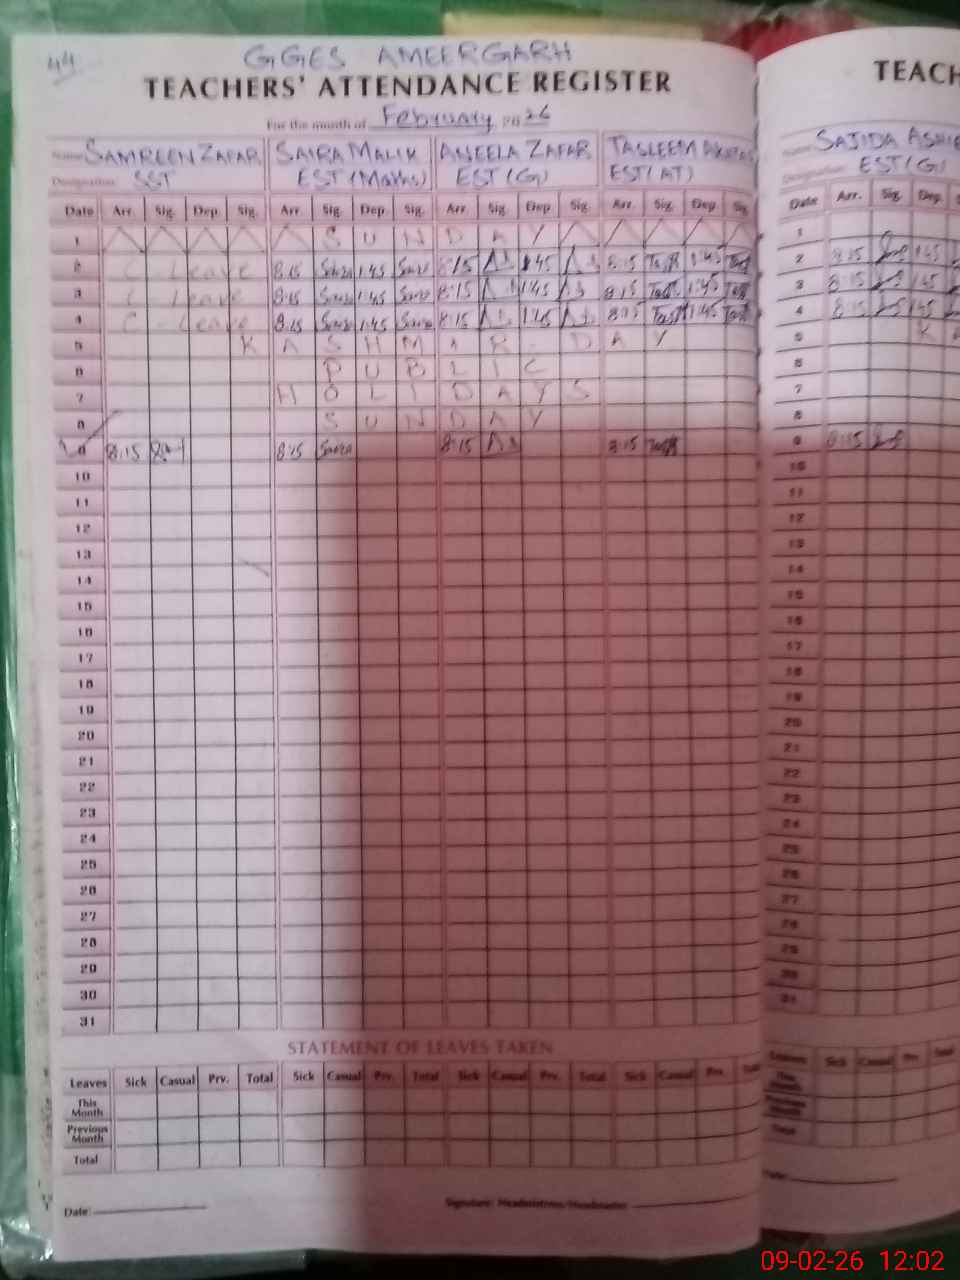 44
GGES AMEERGARH
TEACHERS' ATTENDANCE REGISTER
For the month of February 2026
Name SAMREEN ZAFAR SAIRA MALIK ANEELA ZAFAR TASLEEM
Designation SST EST (Maths) EST (G) EST (AT)
Date Arr. Sig. Dep. Sig. Arr. Sig. Dep. Sig. Arr. Sig. Dep. Sig. Arr. Sig. Dep. Sig.
1 SUNDAY
2 C Leave 8:15 Saira 1:45 Saira 8:15 1:45 8:15 1:45
3 C Leave 8:15 Saira 1:45 Saira 8:15 1:45 8:15 1:45
4 C-Leave 8:15 Saira 1:45 Saira 8:15 1:45 8:15 1:45
5 KASHMIR DAY
6 PUBLIC
7 HOLIDAYS
8 SUNDAY
9 8:15 8:15 Saira 8:15 8:15
10
11
12
13
14
15
16
17
18
19
20
21
22
23
24
25
26
27
28
29
30
31
STATEMENT OF LEAVES TAKEN
Leaves Sick Casual Prv. Total Sick Casual Prv. Total Sick Casual Prv. Total Sick Casual Prv. Total
This Month
Previous Month
Total
Date: Signature: Headmistress/Headmaster
TEACH
Name SAJIDA
Designation EST (G)
Date Arr. Sig. Dep.
1
2 8:15 1:45
3 8:15 1:45
4 8:15 1:45
5 K
6
7
8
9 8:15
10
11
12
13
14
15
16
17
18
19
20
21
22
23
24
25
26
27
28
29
30
31
Leaves Sick Casual Prv. Total
This Month
Previous Month
Total
Date:
09-02-26 12:02